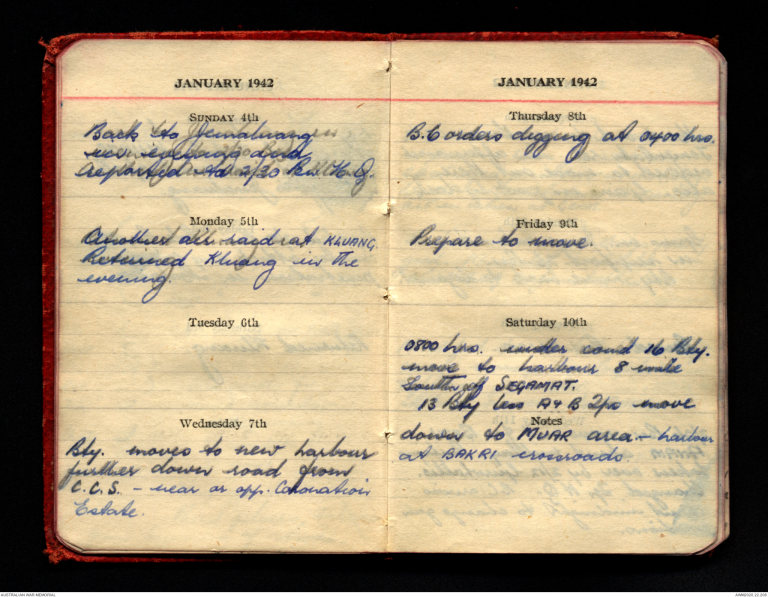 JANUARY 1942
SUNDAY 4th
Back to Jemaluang
rec. evening and
reported Ad 2/30 Bn H.Q.
Monday 5th
Another air raid at KLUANG.
Returned Kluang in the
evening.
Tuesday 6th
Wednesday 7th
Bty. moves to new harbour
further down road from
C.C.S. - near or opp. Coronation
Estate.
JANUARY 1942
Thursday 8th
B.C orders digging at 0400 hrs.
Friday 9th
Prepare to move.
Saturday 10th
0800 hrs. under comd 16 Bty.
move to harbour 8 mile
South of SEGAMAT.
13 Bty less A & B move
Notes
down to MUAR area - harbour
at BAKRI crossroads.
AUSTRALIAN WAR MEMORIAL